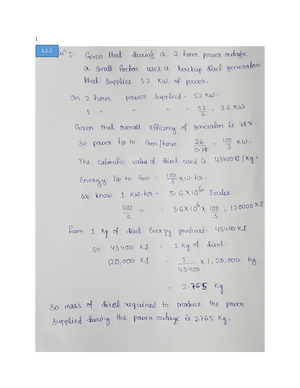 1
1.1.1
Given that during a 2 hour power outage
a small factory uses a backup diesel generator
that supplies 52 KW of power.
In 2 hour power supplied - 52 KW.
1 " " " = 52/2 = 26 KW
Given that overall efficiency of generator is 78%.
So power i/p to Gen/hour = 26/0.78 = 100/3 KW.
The calorific value of diesel used is 43400 KJ/Kg.
Energy i/p to Gen = 100/3 KW-hr.
We know 1 KW hr = 3.6X10⁶ Joules
100/3 " = 3.6X10⁶ X 100/3 = 120000 KJ
from 1 Kg of diesel Energy produced - 43400 KJ
So 43400 KJ = 1 Kg of diesel.
120,000 KJ = 1/43400 X 1,20,000 Kg
= 2.765 Kg
So mass of diesel required to produce the power
supplied during the power outage is 2.765 Kg.